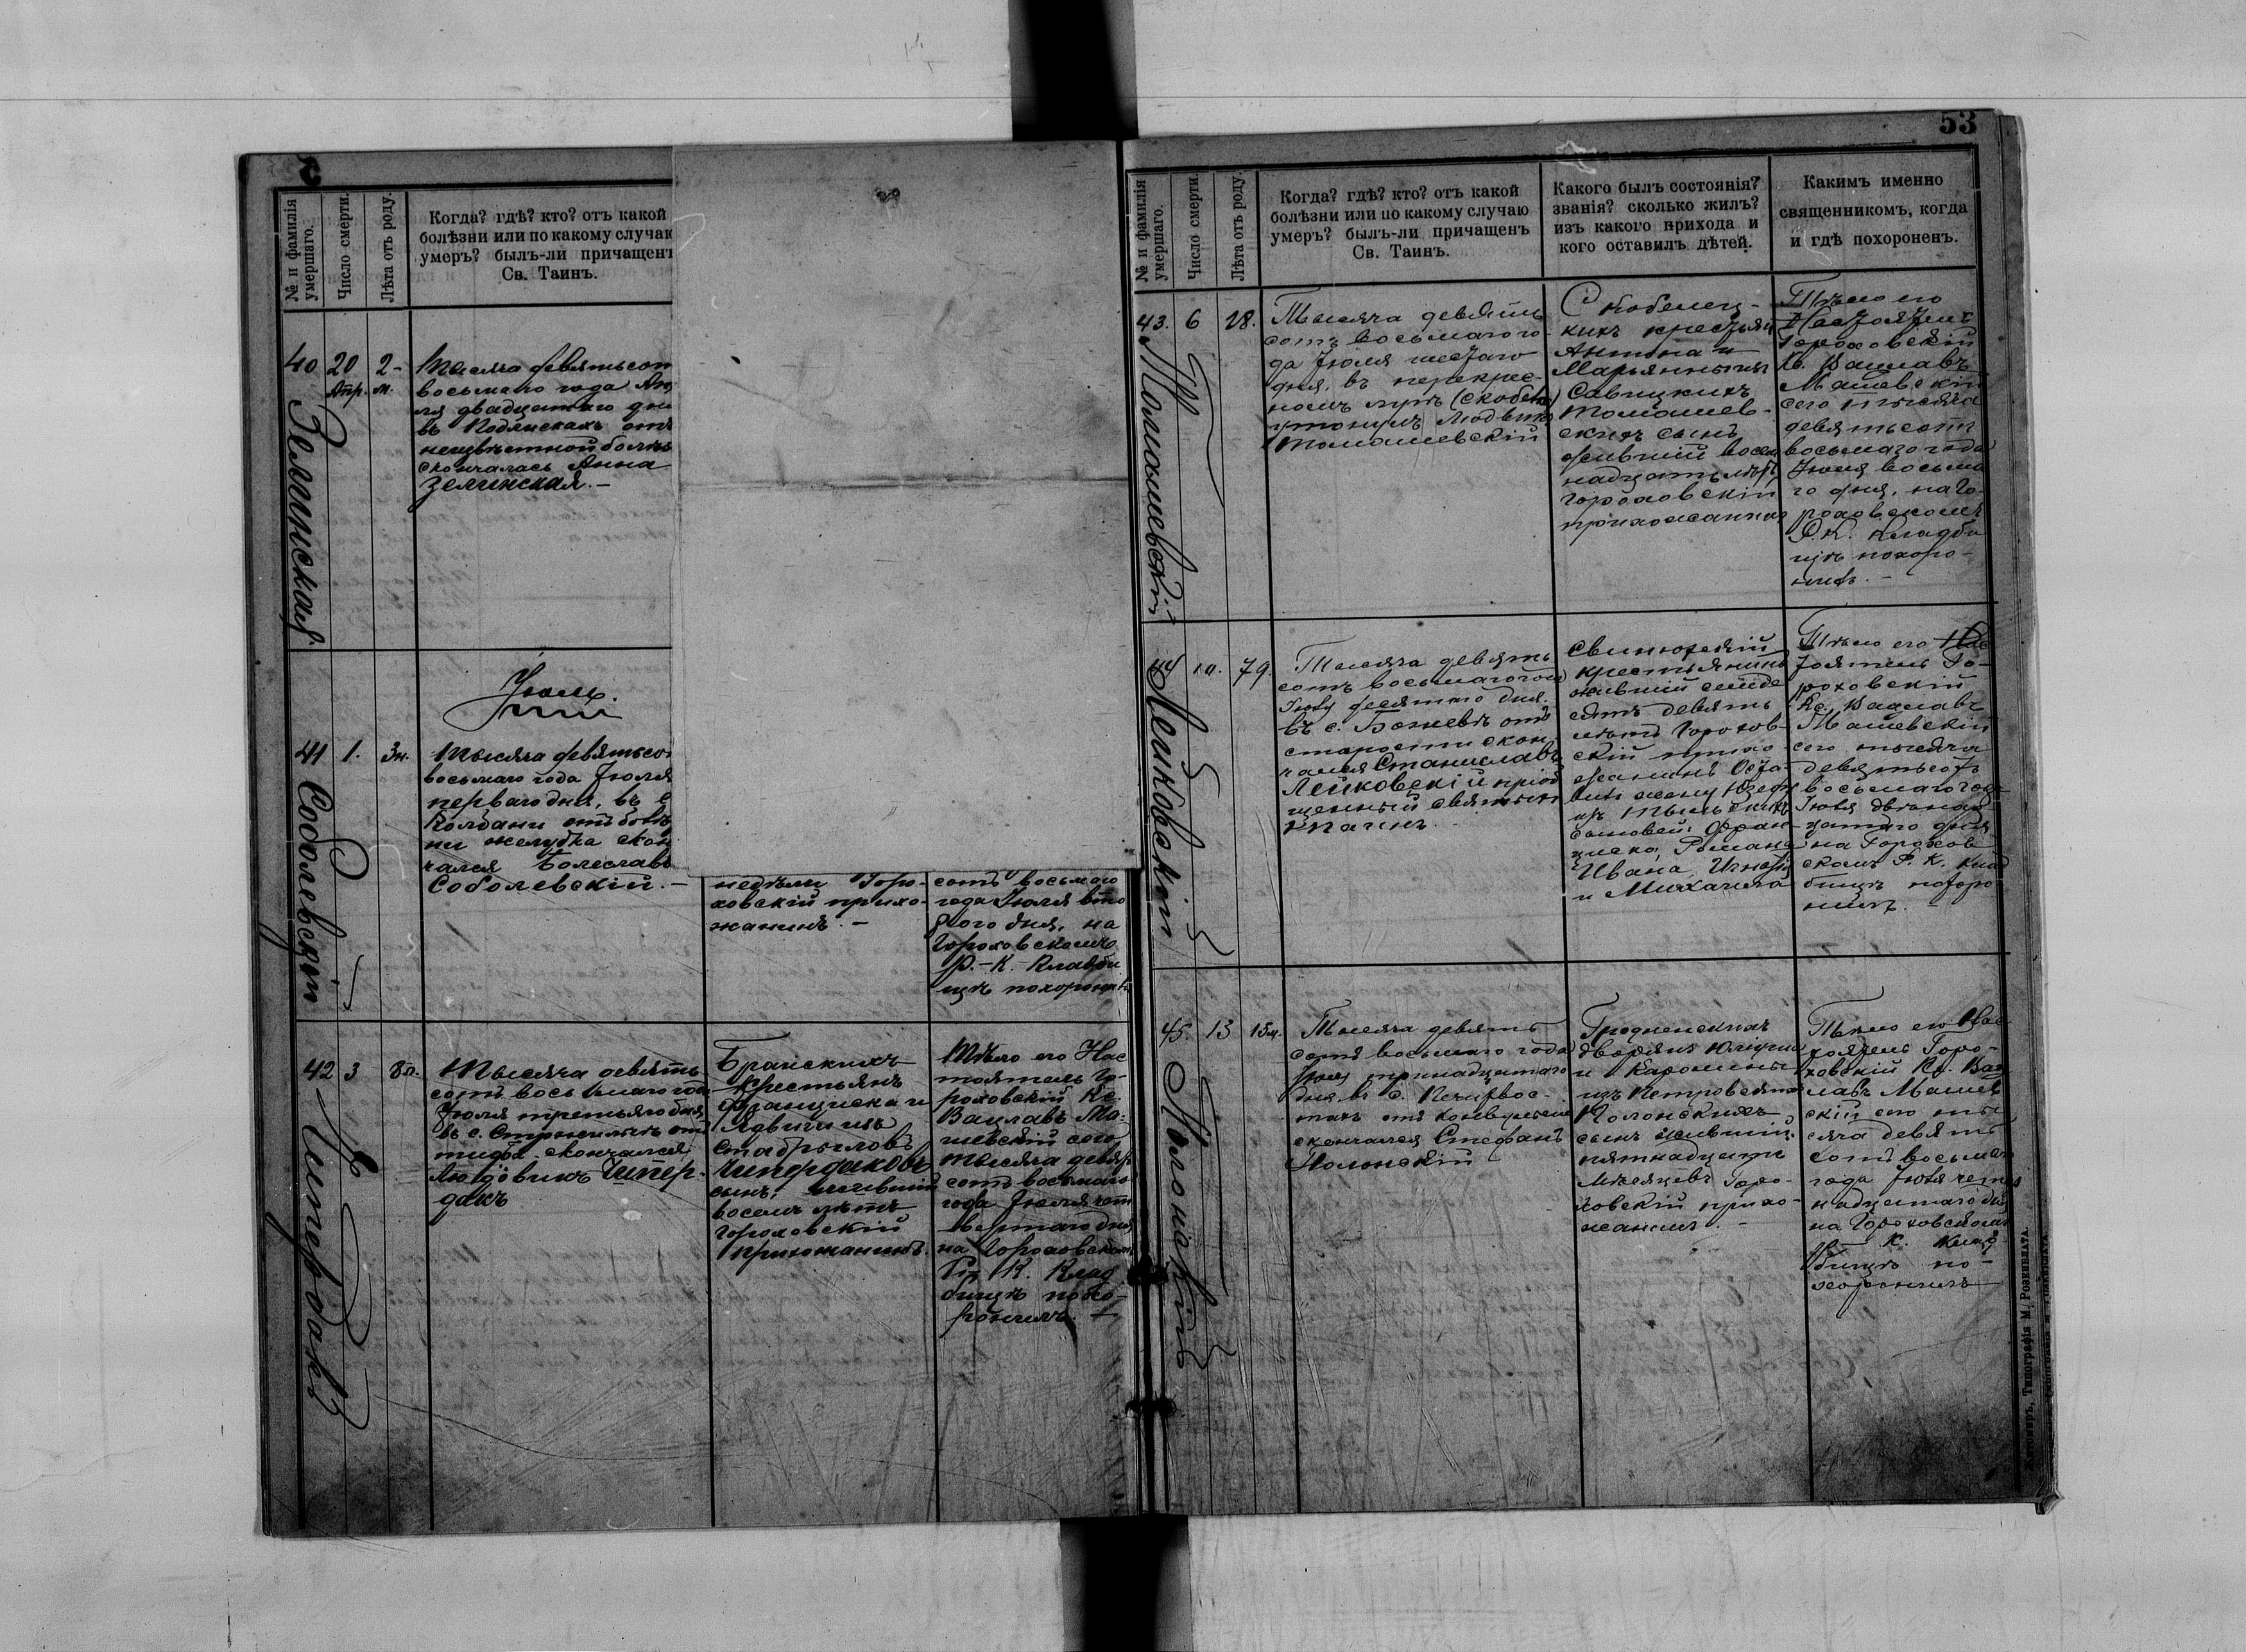 53
№ и фамилія умершаго.
Число смерти.
Лѣта отъ роду.
Когда? гдѣ? кто? отъ какой
болѣзни или по какому случаю
умеръ? былъ-ли причащенъ
Св. Таинъ.
40
20
Апр.
2-
м.
Зелинская
Тысяча девятьсот
восьмаго года
ля двадцатаго дня
въ отъ
неизвѣстной болѣз
скончалась Анна
Зелинская. —
Іюль.
41
1.
3н.
Соболевскій
Тысяча девятьсо
восьмаго года Іюля
перваго дня, въ с
Колбани отъ болѣз
ни желудка скон
чался Болеславъ
Соболевскій. —
недѣли Горо-
ховскій прихо-
жанинъ. —
сотъ восьмаго
года Іюля вто
рого дня, на
Гороховскомъ
Р.-К. Кладби
щѣ похоронилъ
42
3
8л.
Чипердакъ
Тысяча девять
сотъ восьмаго года
Іюля третьяго дня
въ с. отъ
тифа скончался
Людовикъ Чипер-
дакъ
Бранскихъ
крестьянъ
Франциска и
Ядвиги изъ
Стабрыловъ
Чипердаковъ
сынъ, жившій
восемь лѣтъ
Гороховскій
прихожанинъ.
Тѣло его Нас
тоятель Го-
роховскій Кс.
Вацлавъ Ма-
шевскій сего
тысяча девять
сотъ восьмаго
года Іюля чет
вертаго дня
на Гороховскомъ
Р. К. Клад
бищѣ похо-
ронилъ. —
№ и фамилія умершаго.
Число смерти.
Лѣта отъ роду.
Когда? гдѣ? кто? отъ какой
болѣзни или по какому случаю
умеръ? былъ-ли причащенъ
Св. Таинъ.
Какого былъ состоянія?
званія? сколько жилъ?
изъ какого прихода и
кого оставилъ дѣтей.
Какимъ именно
священникомъ, когда
и гдѣ похороненъ.
43.
6
18.
Томашевскій
Тысяча девять
сотъ восьмаго го
да Іюля шестаго
дня, въ
утонулъ Людвикъ
Томашевскій
Скобелец-
кихъ крестьянъ
Антона и
Марьянны изъ
Савицкихъ
Томашев-
скихъ сынъ
жившій восем
надцать лѣтъ
Гороховскій
прихожанинъ
Тѣло его
Настоятель
Гороховскій
Кс. Вацлавъ
Машевскій
сего тысяча
девятьсотъ
восьмаго года
Іюля восьма
го дня, на Го
роховскомъ
Р. К. Кладби
щѣ похоро-
нилъ. —
44
10.
79.
Лейковскій
Тысяча девять
сотъ восьмаго года
Іюля десятаго дня
въ с. Божевъ отъ
старости скон
чался Станиславъ
Лейковскій пріоб
щенный святыхъ
таинъ. —
Свинюхскій
крестьянинъ
жившій семьде
сятъ девять
лѣтъ Горохов-
скій прихо
жанинъ Оста
вилъ жену Юзефу
изъ
сыновей: Фран
циска, Романа
Ивана, Игнатія
и Михаила
Тѣло его Нас
тоятель Го-
роховскій
Кс. Вацлавъ
Машевскій
сего тысяча
девятьсотъ
восьмаго года
Іюля двѣнад
цатаго дня
на Горохов
скомъ Р. К. клад
бищѣ похоро
нилъ. —
45.
13
15м.
Полонскій
Тысяча девять
сотъ восьмаго года
Іюля тринадцатаго
дня въ с. Печихвос-
тахъ отъ конвульсіи
скончался Стефанъ
Полонскій
Гродненскихъ
дворянъ
и Каролины
изъ Петровскихъ
Полонскихъ
сынъ жившій
пятнадцать
мѣсяцевъ Горо-
ховскій прихо-
жанинъ. —
Тѣло его Нас
тоятель Горо-
ховскій Кс. Вац
лавъ Машев
скій сего ты
сяча девять
сотъ восьмаго
года Іюля четыр
надцатаго дня
на Гороховскомъ
Р. К. Клад
бищѣ по-
хоронилъ
Житомиръ, Типографія М. Розенблата.